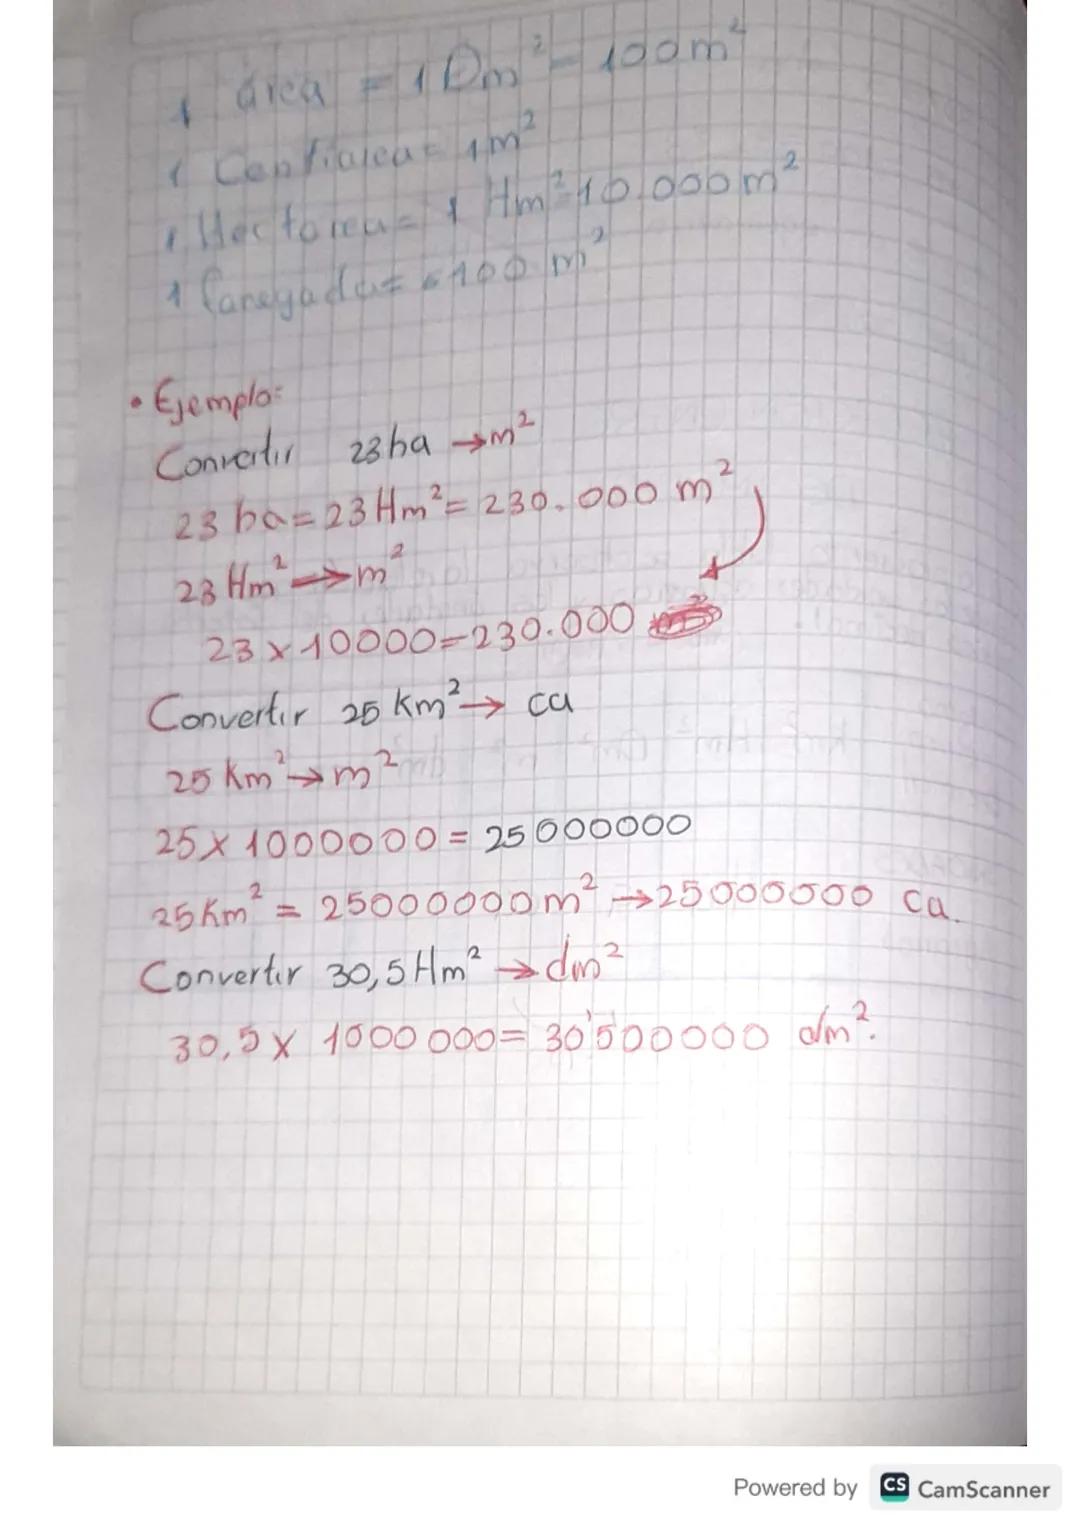 1 área = 1 Dm² = 100m²
1 Centiarea = 1m²
1 Hectarea = 1 Hm² = 10.000 m²
1 fanegada = 6400 m²
• Ejemplo:
Convertir 23 ha → m²
23 ha = 23 Hm² = 230.000 m²
23 Hm² → m²
23 x 10000 = 230.000
Convertir 25 Km² → ca
25 Km² → m²
25 x 1000000 = 25000000
25 Km² = 25000000 m² → 25000000 ca.
Convertir 30,5 Hm² → dm²
30,5 x 1000 000 = 30'500000 dm².
Powered by CS CamScanner